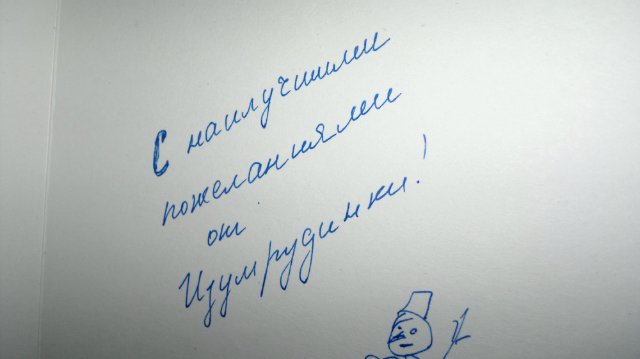 С наилучшими
пожеланиями
от
Изумрудинки!